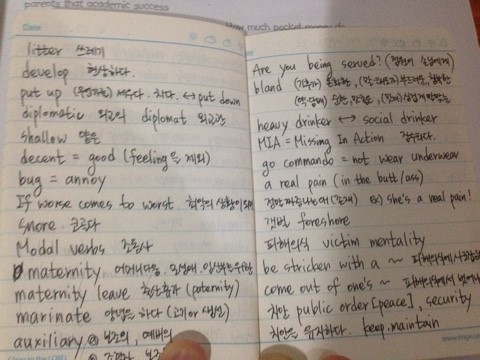 parents that academic success
How much pocket money do
litter 쓰레기
develop 현상하다.
put up (우산 등을) 세우다. 치다. ↔ put down
diplomatic 외교의 diplomat 외교관
shallow 얕은
decent = good (feeling은 제외)
bug = annoy
If worse comes to worst 최악의 상황이
snore 코골다
Modal verbs 조동사
maternity 어머니다움,
maternity leave 출산휴가 (paternity)
marinate 양념을 하다 (고기or생선)
auxiliary 보조의, 예비의
Are you being served? (점원이 손님에게)
bland
heavy drinker ↔ social drinker
MIA = Missing In Action
go commando = not wear underwear
a real pain (in the butt/ass)
ex) she's a real pain!
갯벌 foreshore
피해의식 victim mentality
be stricken with a ~ 피해의식에
come out of one's ~ 피해의식에서 벗어
치안 public order [peace], security
치안을 유지하다. keep, maintain